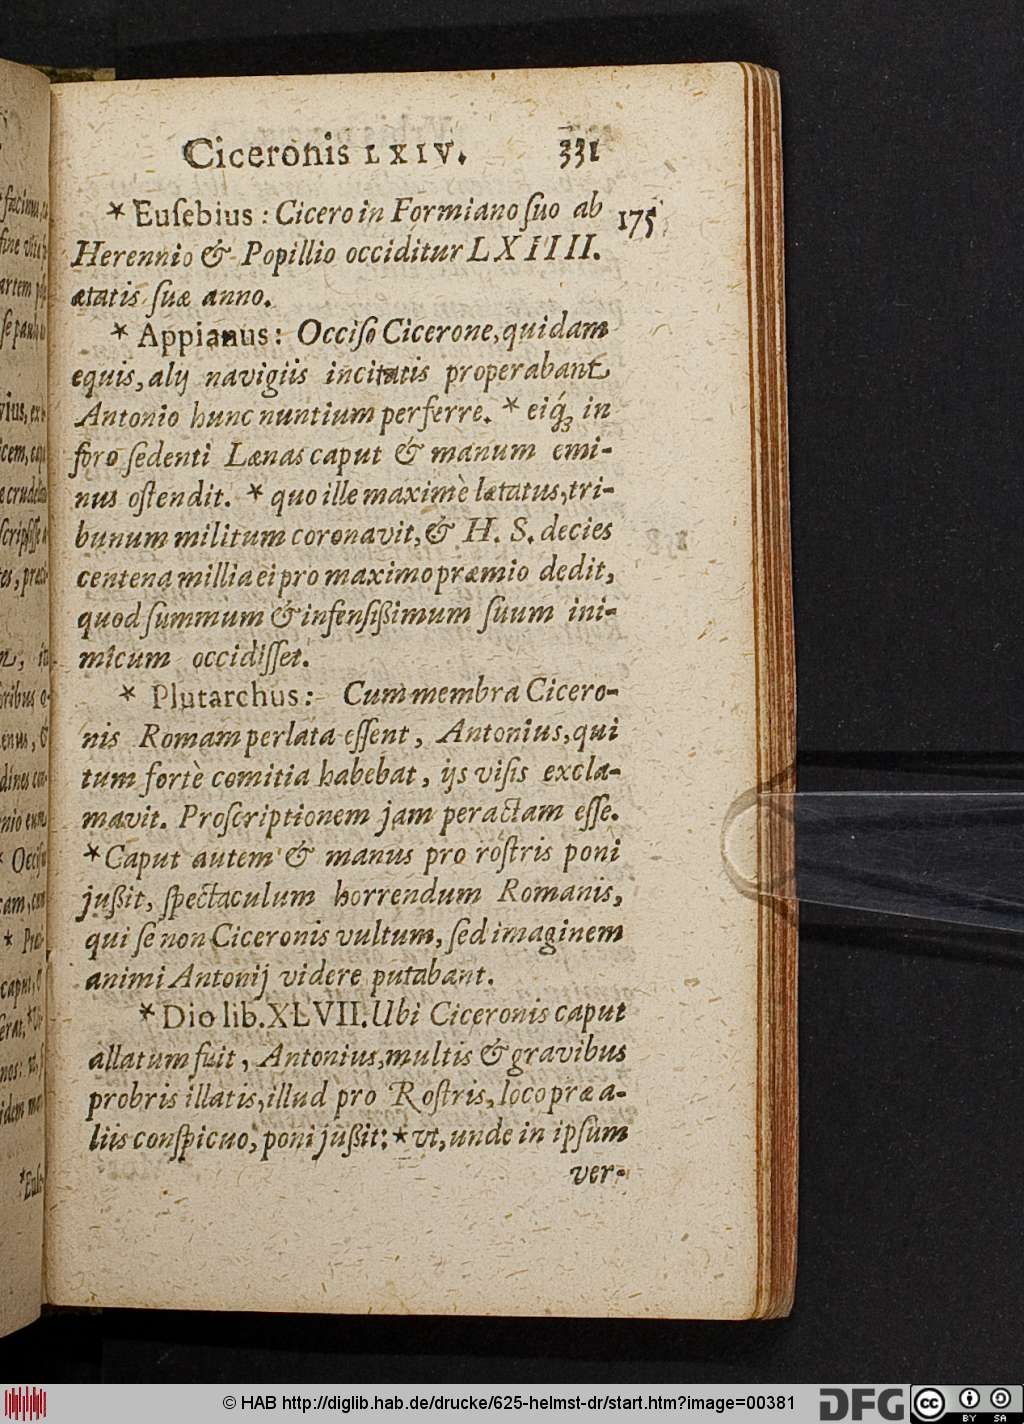 Ciceronis LXIV. 331
* Euſebius: Cicero in Formiano ſuo ab 175
Herennio & Popillio occiditur LXIIII.
ætatis ſuæ anno.
* Appianus: Occiſo Cicerone, quidam
equis, alij navigiis incitatis properabant
Antonio hunc nuntium perferre. * eiq́ꝫ in
foro ſedenti Lænas caput & manum emi-
nus oſtendit. * quo ille maximè lætatus, tri-
bunum militum coronavit, & H. S. decies
centena millia ei pro maximo præmio dedit,
quod ſummum & infenſißimum ſuum ini-
micum occidiſſet.
* Plutarchus: Cum membra Cicero-
nis Romam perlata eſſent, Antonius, qui
tum fortè comitia habebat, ijs viſis excla-
mavit. Proſcriptionem jam peractam eſſe.
* Caput autem & manus pro roſtris poni
jußit, ſpectaculum horrendum Romanis,
qui ſe non Ciceronis vultum, ſed imaginem
animi Antonij videre putabant.
* Dio lib. XLVII. Ubi Ciceronis caput
allatum fuit, Antonius, multis & gravibus
probris illatis, illud pro Roſtris, loco præ a-
liis conſpicuo, poni jußit: * vt, unde in ipſum
ver-
© HAB http://diglib.hab.de/drucke/625-helmst-dr/start.htm?image=00381
DFG
cc BY SA